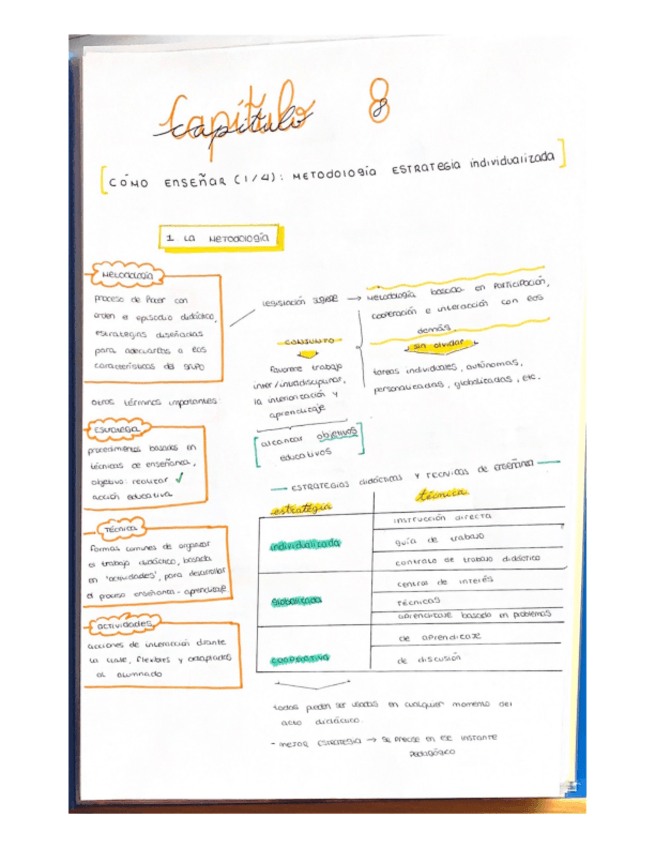 Capítulo 8
capítulo 8
CÓMO ENSEÑAR (1/4): METODOLOGÍA ESTRATEGIA individualizada
1 LA METODOLOGÍA
METODOLOGÍA
proceso de hacer con
orden el episodio didáctico,
estrategias diseñadas
para adecuarlas a las
características del grupo
otros términos importantes:
ESTRATEGIA
procedimientos basados en
técnicas de enseñanza,
objetivo: realizar ✓
acción educativa
TÉCNICA
formas comunes de organizar
el trabajo didáctico, basada
en 'actividades', para desarrollar
el proceso enseñanza-aprendizaje
ACTIVIDADES
acciones de interacción durante
la clase, flexibles y adaptadas
al alumnado
legislación sugiere → metodología basada en participación,
cooperación e interacción con los
demás.
sin olvidar
tareas individuales, autónomas,
personalizadas, globalizadas, etc.
CONJUNTO
favorece trabajo
inter/intradisciplinar,
la interiorización y
aprendizaje
[alcanzar objetivos
educativos]
— ESTRATEGIAS didácticas y TÉCNICAS de enseñanza —
estrategia
técnica
individualizada
instrucción directa
guía de trabajo
contrato de trabajo didáctico
globalizada
central de interés
técnicas
aprendizaje basado en problemas
cooperativa
de aprendizaje
de discusión
todas pueden ser usadas en cualquier momento del
acto didáctico.
- mejor estrategia → se precise en ese instante
pedagógico